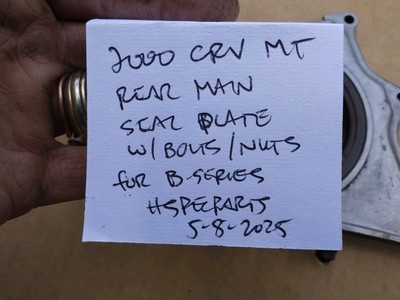 2000 CRV MT
REAR MAIN
SEAL PLATE
W/BOLTS/NUTS
for B-SERIES
HSPECPARTS
5-8-2025